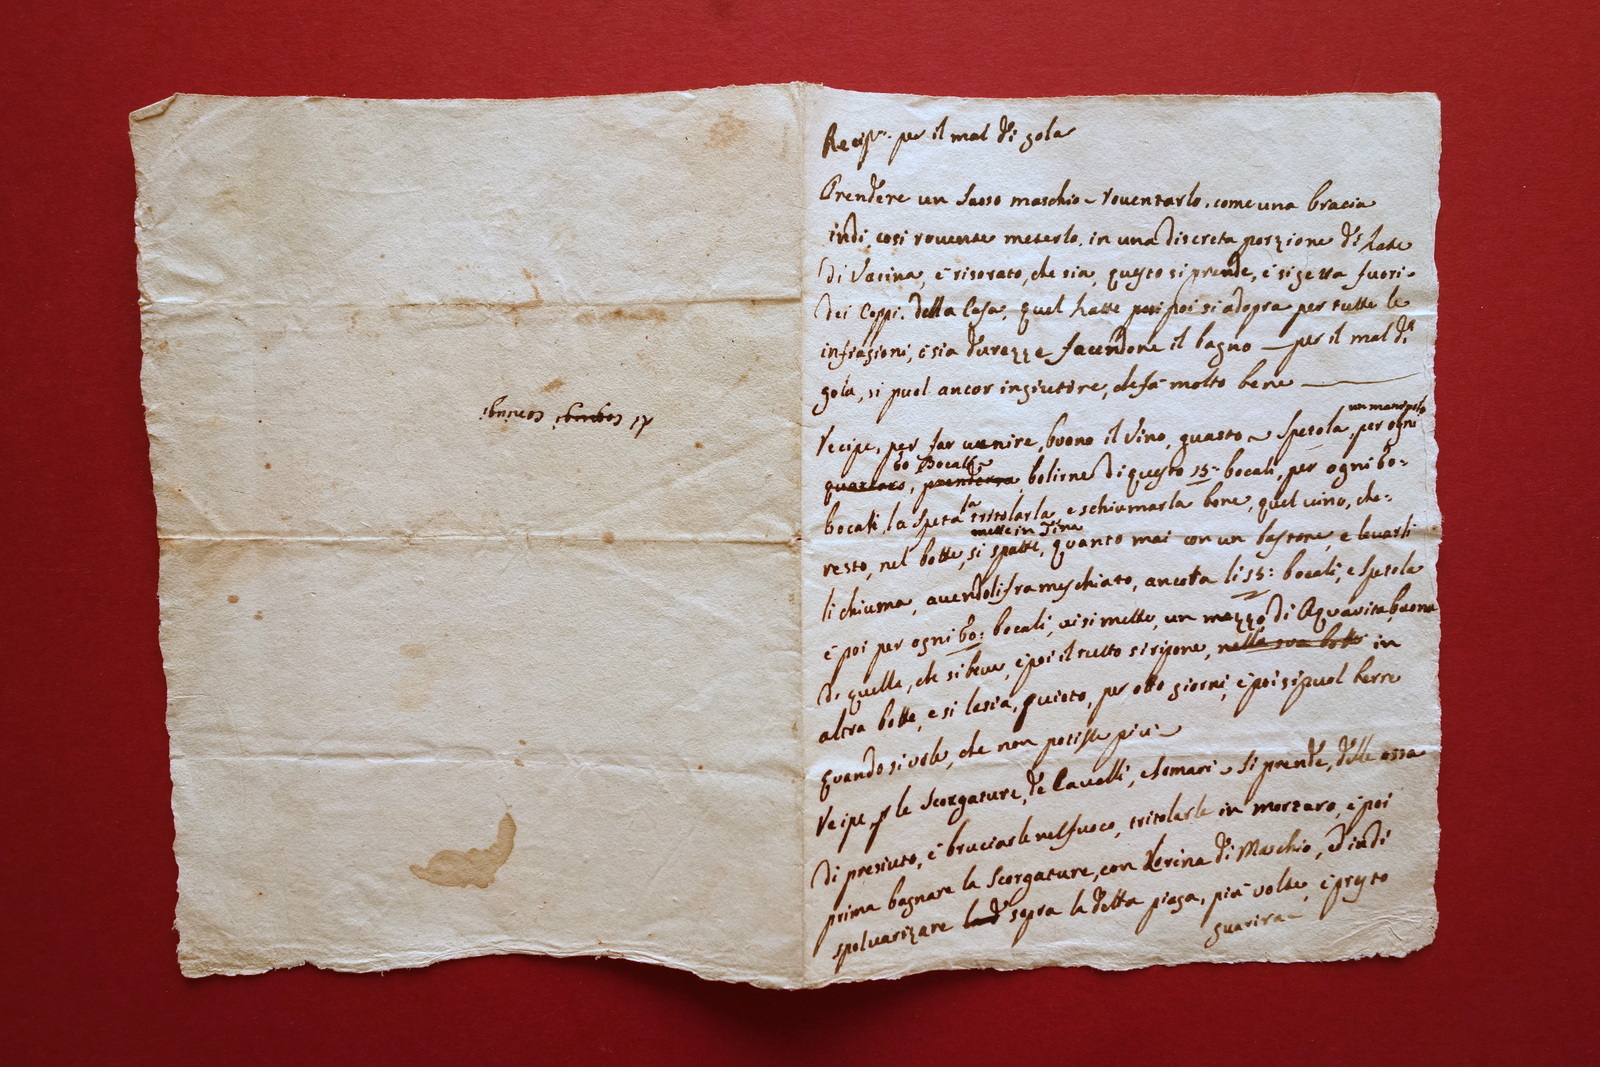 Recip.^e per il mal di gola
Prendere un Sasso maschio rouentarlo, come una bracia
indi, cosi rouente meterlo, in una discreta porzione di Latte
di Vacina, è risorato, che sia, questo si prende, è si getta fuori
dei Coppi della Casa, quel Latte poi si adopra per tutte le
infrasioni, è sia durezze facendone il bagno — per il mal di
gola, si puol ancor ingiutire, che fà molto bene
un manipolo
recipe, per far uenire, buono il Vino, guasto Spetola, per ogni
60 Bocalli
bolirne di questo 15: bocali, per ogni 60:
bocali, la tritolarla e schiumarla bene, quel uino, che
mette in Tina
resto, nel botte, si quanto mai con un bastone, e leuarli
li chiuma, auendoli frameschiato, ancora li 15: bocali, e Spetola
è poi per ogni 60: bocali, ui si mette, un mezzo di Aquauita buona
di quella, che si beue, è poi il tutto si ripone, nella sua botte in
altra botte, e si lasia, quieto, per otto giorni, è poi si puol berre
quando si uole, che non patisse più
recipe, p le Scorgature, de Caualli, e Somari Si prende, delle ossa
di presiuto, è bruciarle nel fuoco, tritolarle in mortaro, è poi
prima bagnare la Scorgature, con Vorina di Maschio, ed indi
spoluarizare sopra la detta piaga, più uolte, è presto
guarira